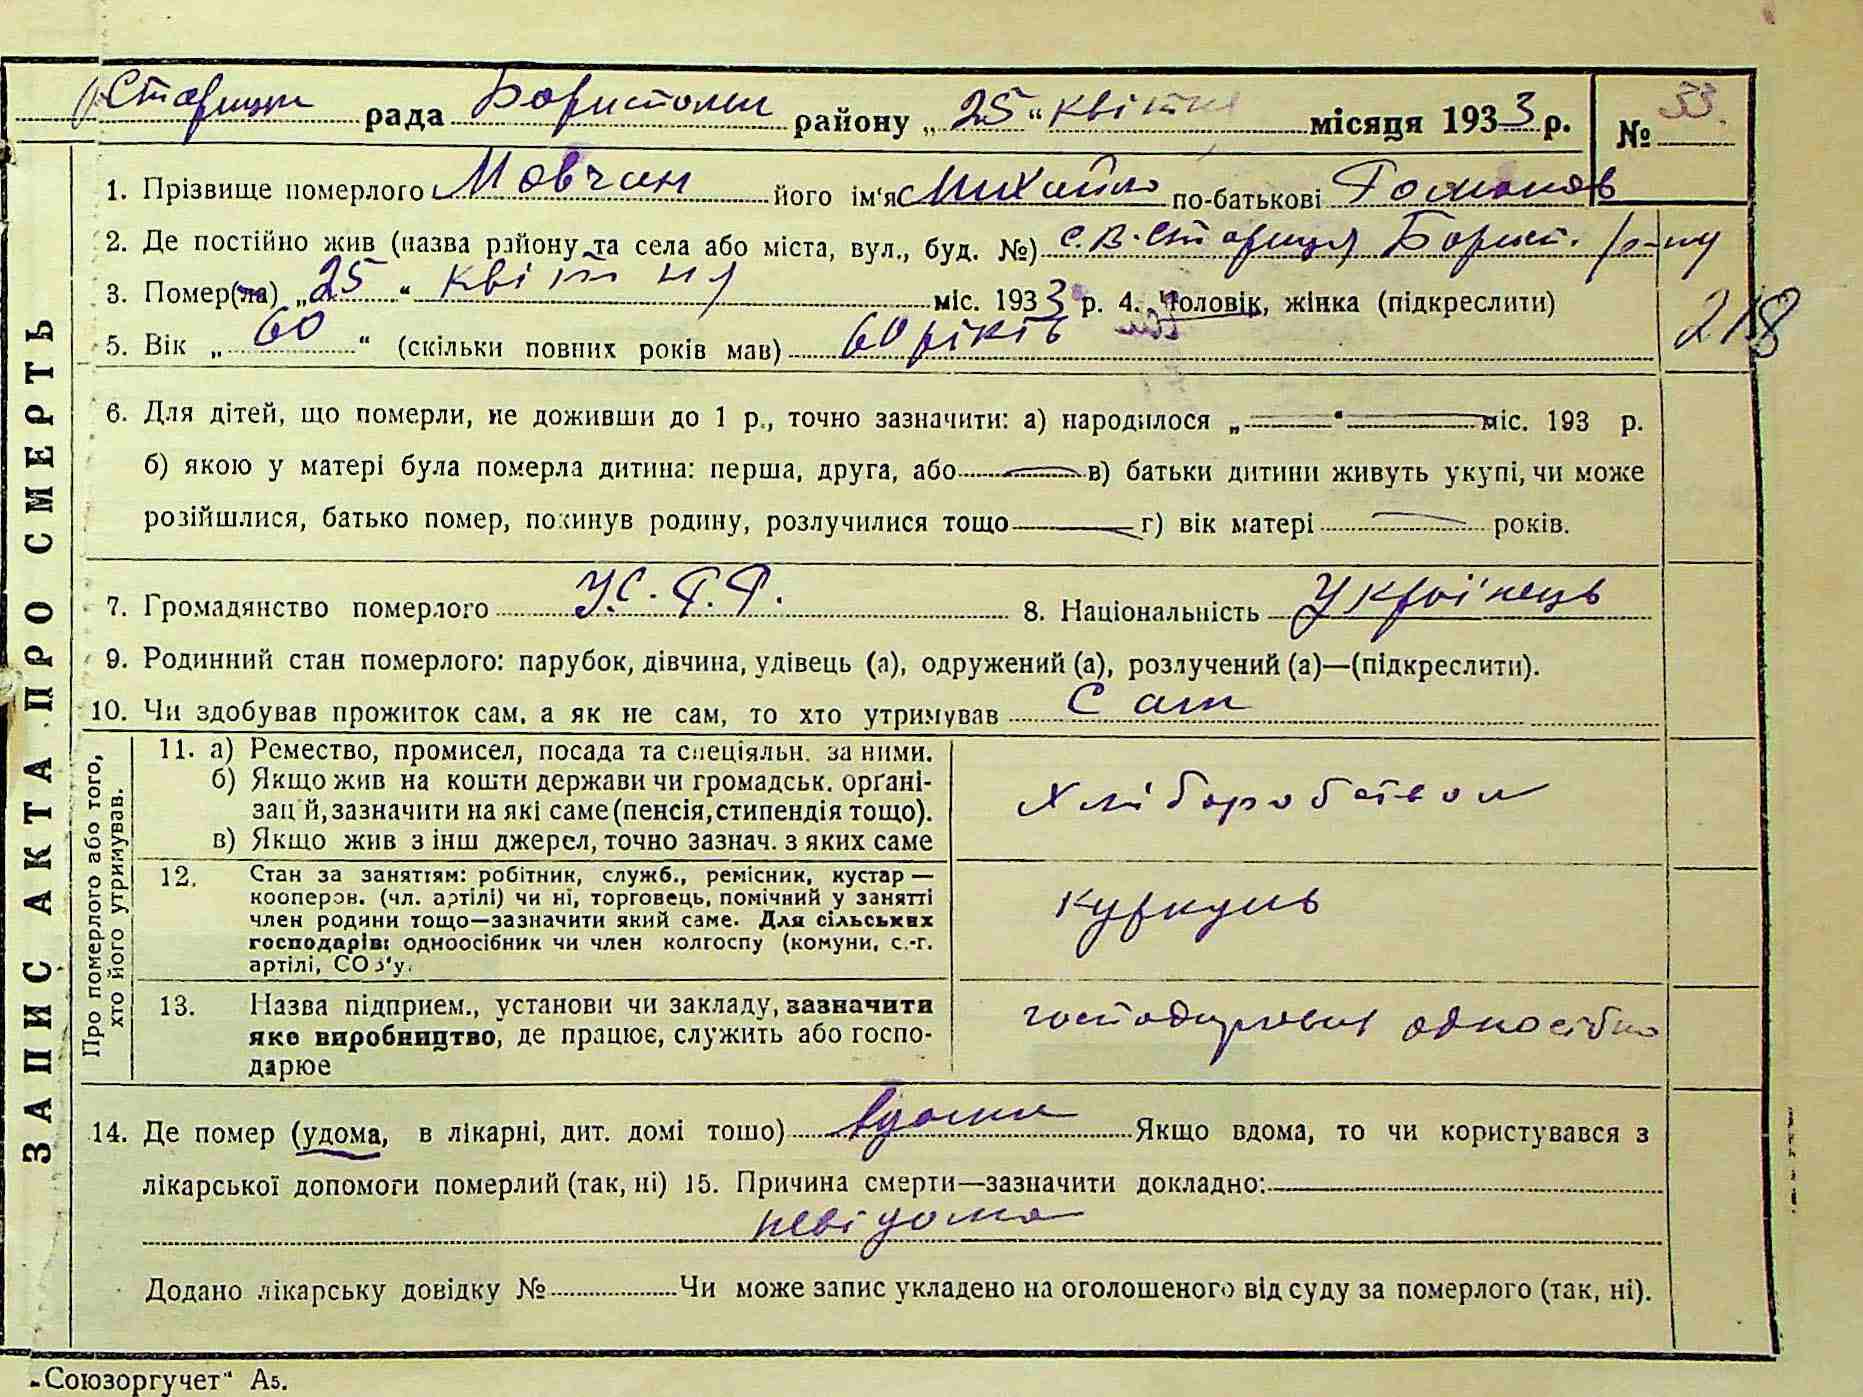 Стариця рада Бориспольс району „25“ квітня місяця 1933 р. № 33.
1. Прізвище померлого Мовчан його ім'я Михайло по-батькові Романов
2. Де постійно жив (назва району та села або міста, вул., буд. №) с. В-Стариця, Борисп. р-ну
3. Помер(ла) „25“ квітня міс. 1933 р. 4. Чоловік, жінка (підкреслити)
218
5. Вік „60“ (скільки повних років мав) 60 років
6. Для дітей, що померли, не доживши до 1 р., точно зазначити: а) народилося „ “ міс. 193 р.
б) якою у матері була померла дитина: перша, друга, або в) батьки дитини живуть укупі, чи може
розійшлися, батько помер, покинув родину, розлучилися тощо г) вік матері років.
7. Громадянство померлого У.С.Р.Р. 8. Національність Українець
9. Родинний стан померлого: парубок, дівчина, удівець (а), одружений (а), розлучений (а)—(підкреслити).
10. Чи здобував прожиток сам, а як не сам, то хто утримував Сам
Про померлого або того, хто його утримував.
11. а) Ремество, промисел, посада та спеціяльн. за ними.
б) Якщо жив на кошти держави чи громадськ. орґані-
зацій, зазначити на які саме (пенсія, стипендія тощо).
в) Якщо жив з інш джерел, точно зазнач. з яких саме
Хліборобством
12. Стан за заняттям: робітник, служб., ремісник, кустар —
кооперов. (чл. артілі) чи ні, торговець, помічний у занятті
член родини тощо—зазначити який саме. Для сільських
господарів: одноосібник чи член колгоспу (комуни, с.-г.
артілі, СОЗ'у.
куркуль
13. Назва підприєм., установи чи закладу, зазначити
яке виробництво, де працює, служить або госпо-
дарює
господарював одноосібно
14. Де помер (удома, в лікарні, дит. домі тошо) вдома Якщо вдома, то чи користувався з
лікарської допомоги померлий (так, ні) 15. Причина смерти—зазначити докладно:
невідома
Додано лікарську довідку № Чи може запис укладено на оголошеного від суду за померлого (так, ні).
ЗАПИС АКТА ПРО СМЕРТЬ
„Союзоргучет“ А5.